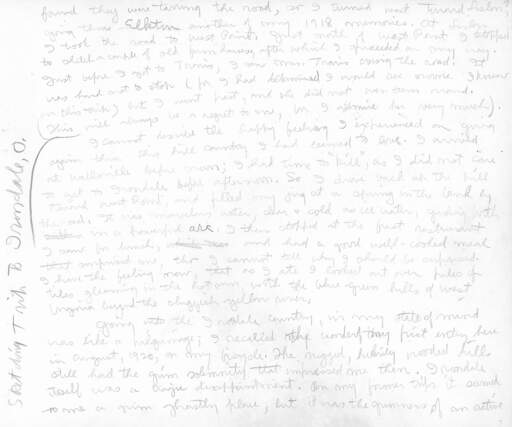 found they were tarring the road, so I turned west toward Salem,
going thru Elkton another of my 1918 memories. At
I took the road to West Point. Just north of West Point I stopped
to sketch a couple of old farm houses, after which I proceeded on my way.
Just before I got to Travis, I saw Miss Travis along the road. It
was hard not to stop (for I had determined I would see no one I knew
on this trip) but I went past, and she did not even turn around.
(This will always be a regret to me, for I admire her very much).
I cannot describe the happy feeling I experienced on going
again thru this hill country I had learned to love. I arrived
at Wellsville before noon; I had time to kill, as I did not care
to get to Irondale before afternoon. So I drove back up the hill
toward West Point, and filled my jug at a spring in the bank by
the road. It was marvelous water, clear & cold as ice water, gushing with
in a beautiful arc. I then stopped at the first restaurant
I came to for lunch, and had a good well-cooked meal
that surprised me, tho I cannot tell why I should be surprised.
I have the feeling now, that as I ate I looked out over piles of
tiles gleaming in the hot sun, with the blue green hills of West
Virginia beyond the sluggish yellow river.
Going into the Irondale country, in my state of mind
was like a pilgrimage; I recalled the wonder of my first entry here
in August, 1920, on my bicycle. The rugged, heavily wooded hills
still had the grim solemnity that impressed me then. Irondale
itself was a disappointment. On my former trips it seemed
to me a grim ghostly place, but it was the grimness of an active
Sketching Trip To Irondale, O.